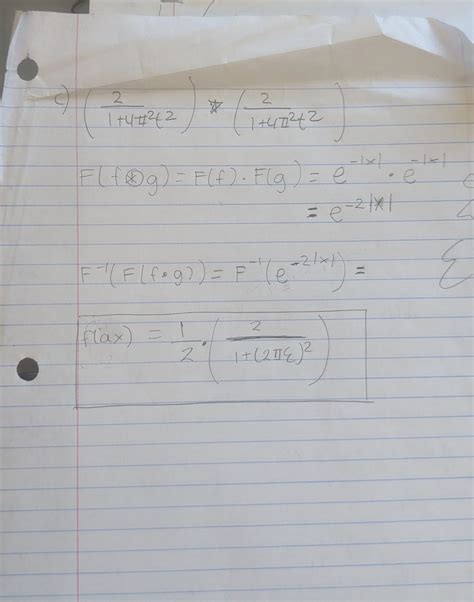 c) (2/(1+4π²t²)) * (2/(1+4π²t²))
F(f⊛g) = F(f) · F(g) = e^{-|x|} · e^{-|x|}
= e^{-2|x|}
F⁻¹(F(f*g)) = F⁻¹(e^{-2|x|}) =
f(ax) = 1/2 · (2/(1+(2πξ)²))